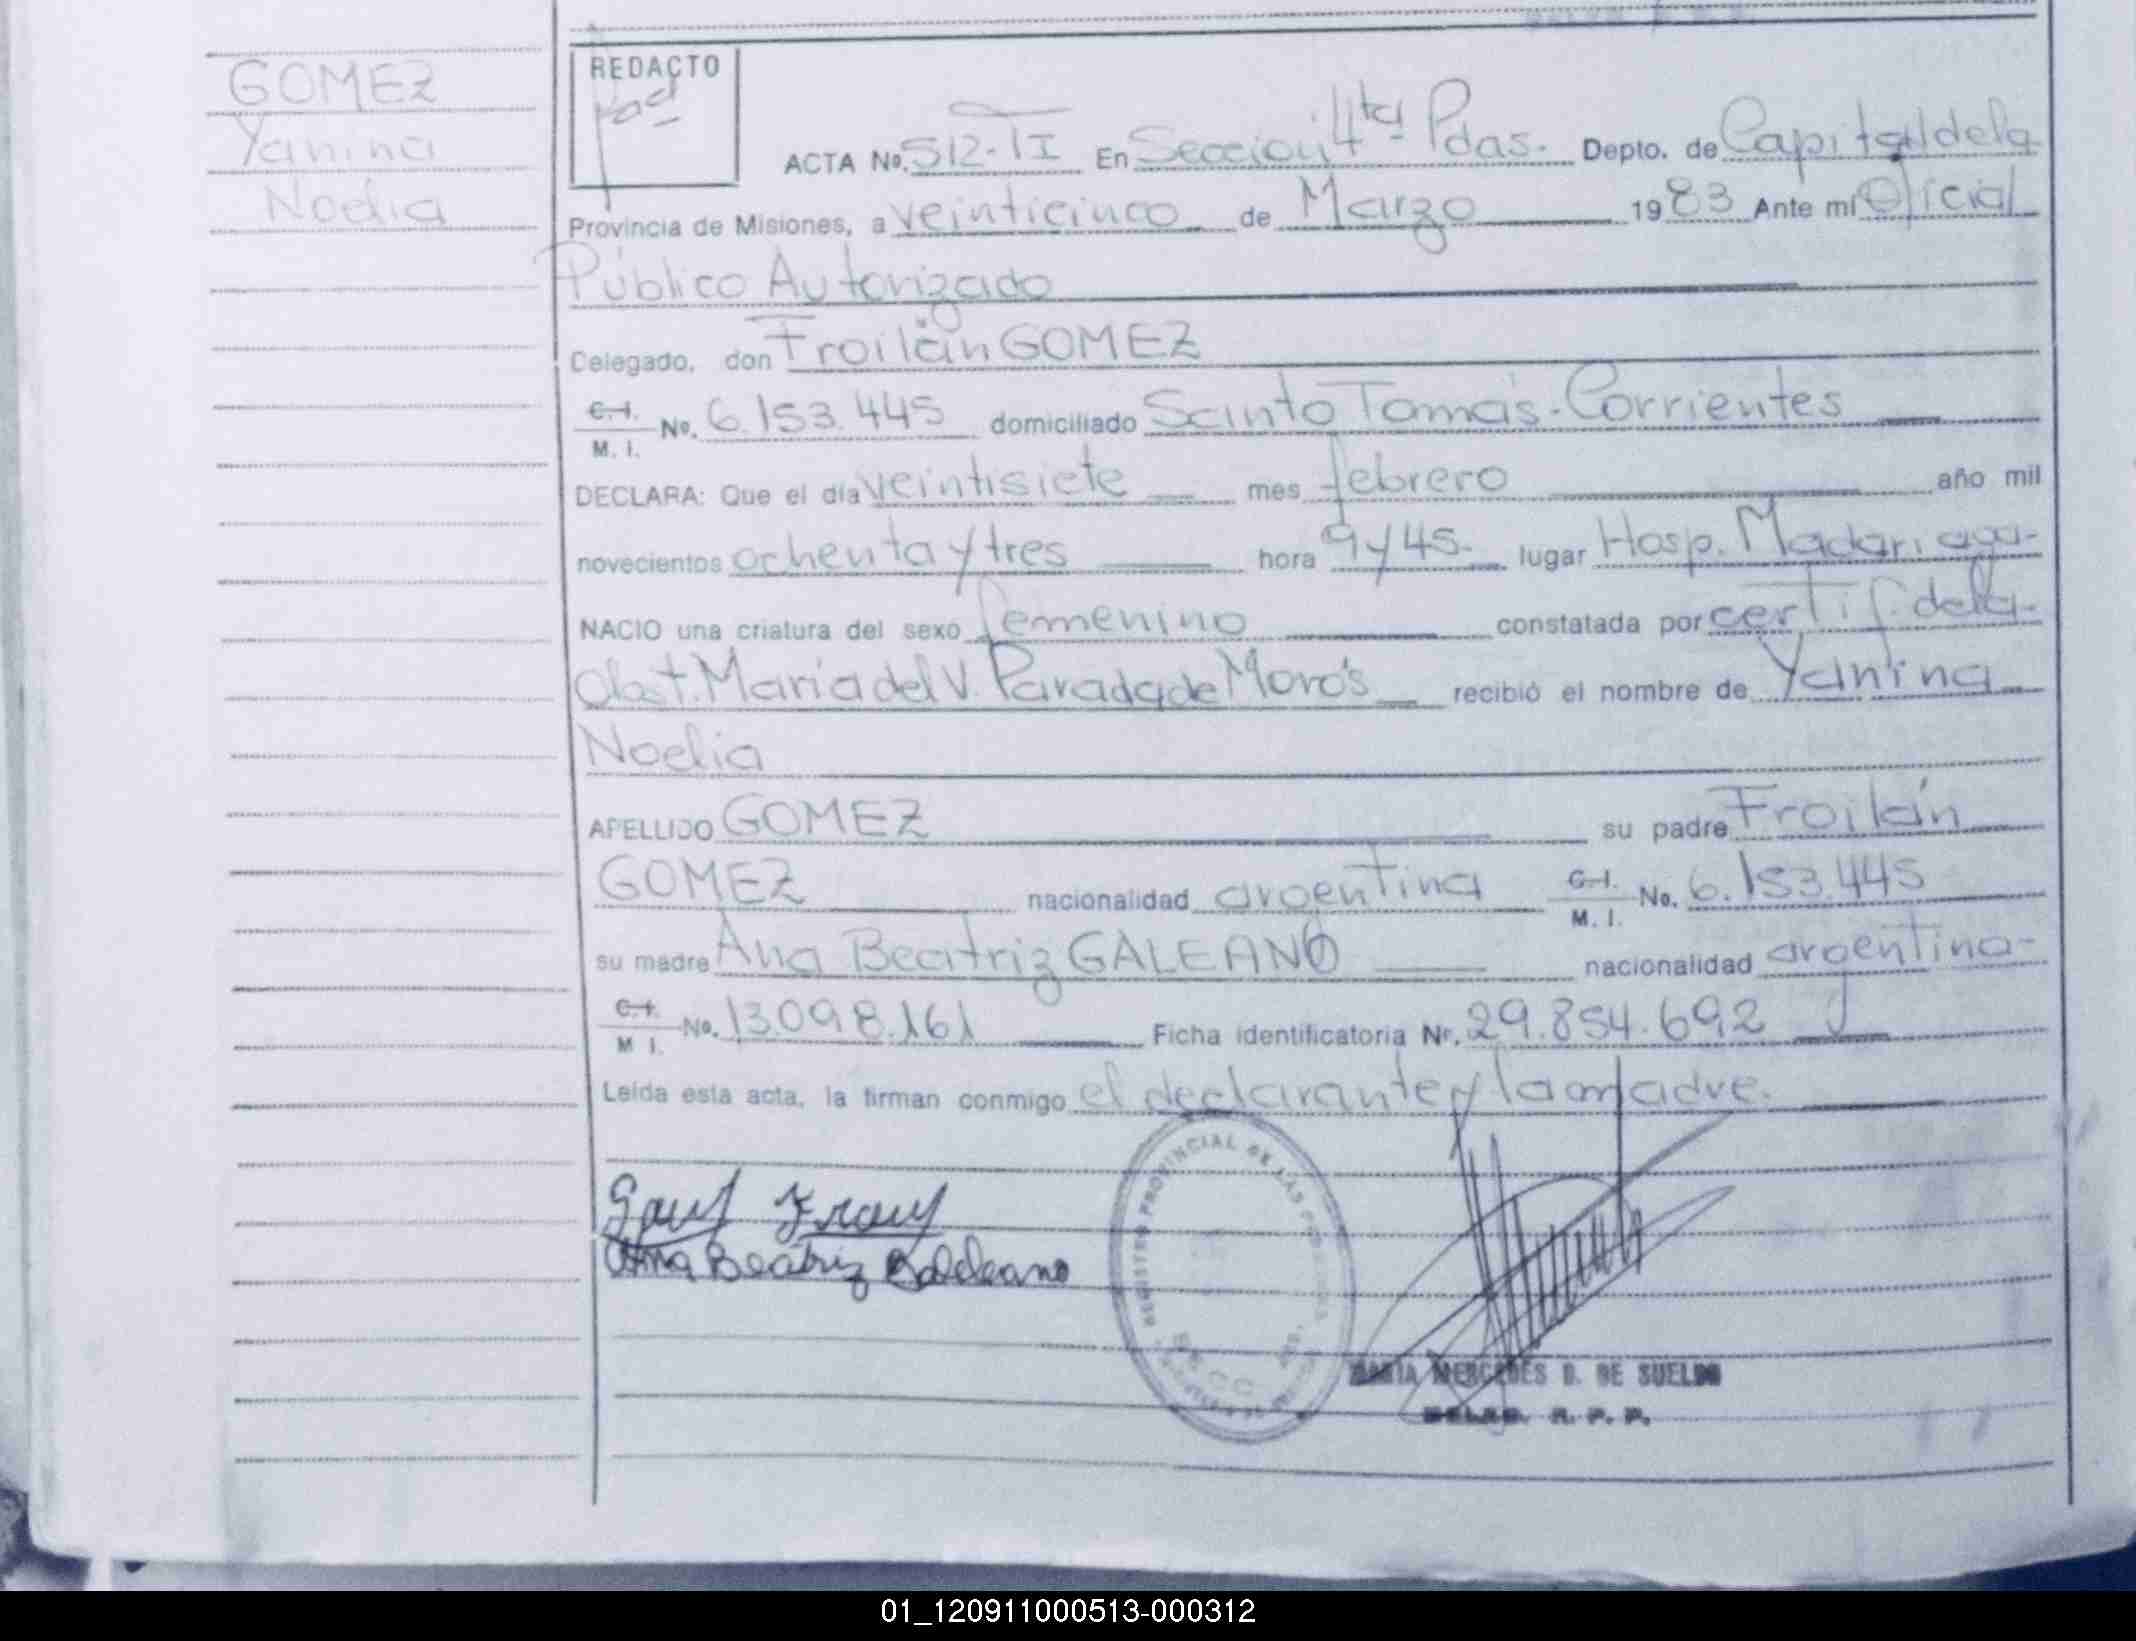 GOMEZ
Yanina
Noelia
REDACTO
ACTA No. 512-TI En Sección 4ta Pdas. Depto. de Capital de la
Provincia de Misiones, a veinticinco de Marzo 1983 Ante mí Oficial
Público Autorizado
Celegado, don Froilán GOMEZ
C.I. M. I. No. 6.153.445 domiciliado Santo Tomás - Corrientes
DECLARA: Que el día veintisiete mes febrero año mil
novecientos ochenta y tres hora 9 y 45. lugar Hosp. Madariaga-
NACIO una criatura del sexo femenino constatada por certif. de la
Obst. María del V. Parada de Morós recibió el nombre de Yanina
Noelia
APELLIDO GOMEZ su padre Froilán
GOMEZ nacionalidad argentina C.I. M. I. No. 6.153.445
su madre Ana Beatriz GALEANO nacionalidad argentina-
C.I. M I. No. 13.098.161 Ficha identificatoria Nr. 29.854.692
Leída esta acta, la firman conmigo el declarante y la madre.
REGISTRO PROVINCIAL DE LAS PERSONAS
Ana Beatriz Galeano
MARIA MERCEDES D. DE SUELDO
DELEG. R. P. P.
01_120911000513-000312